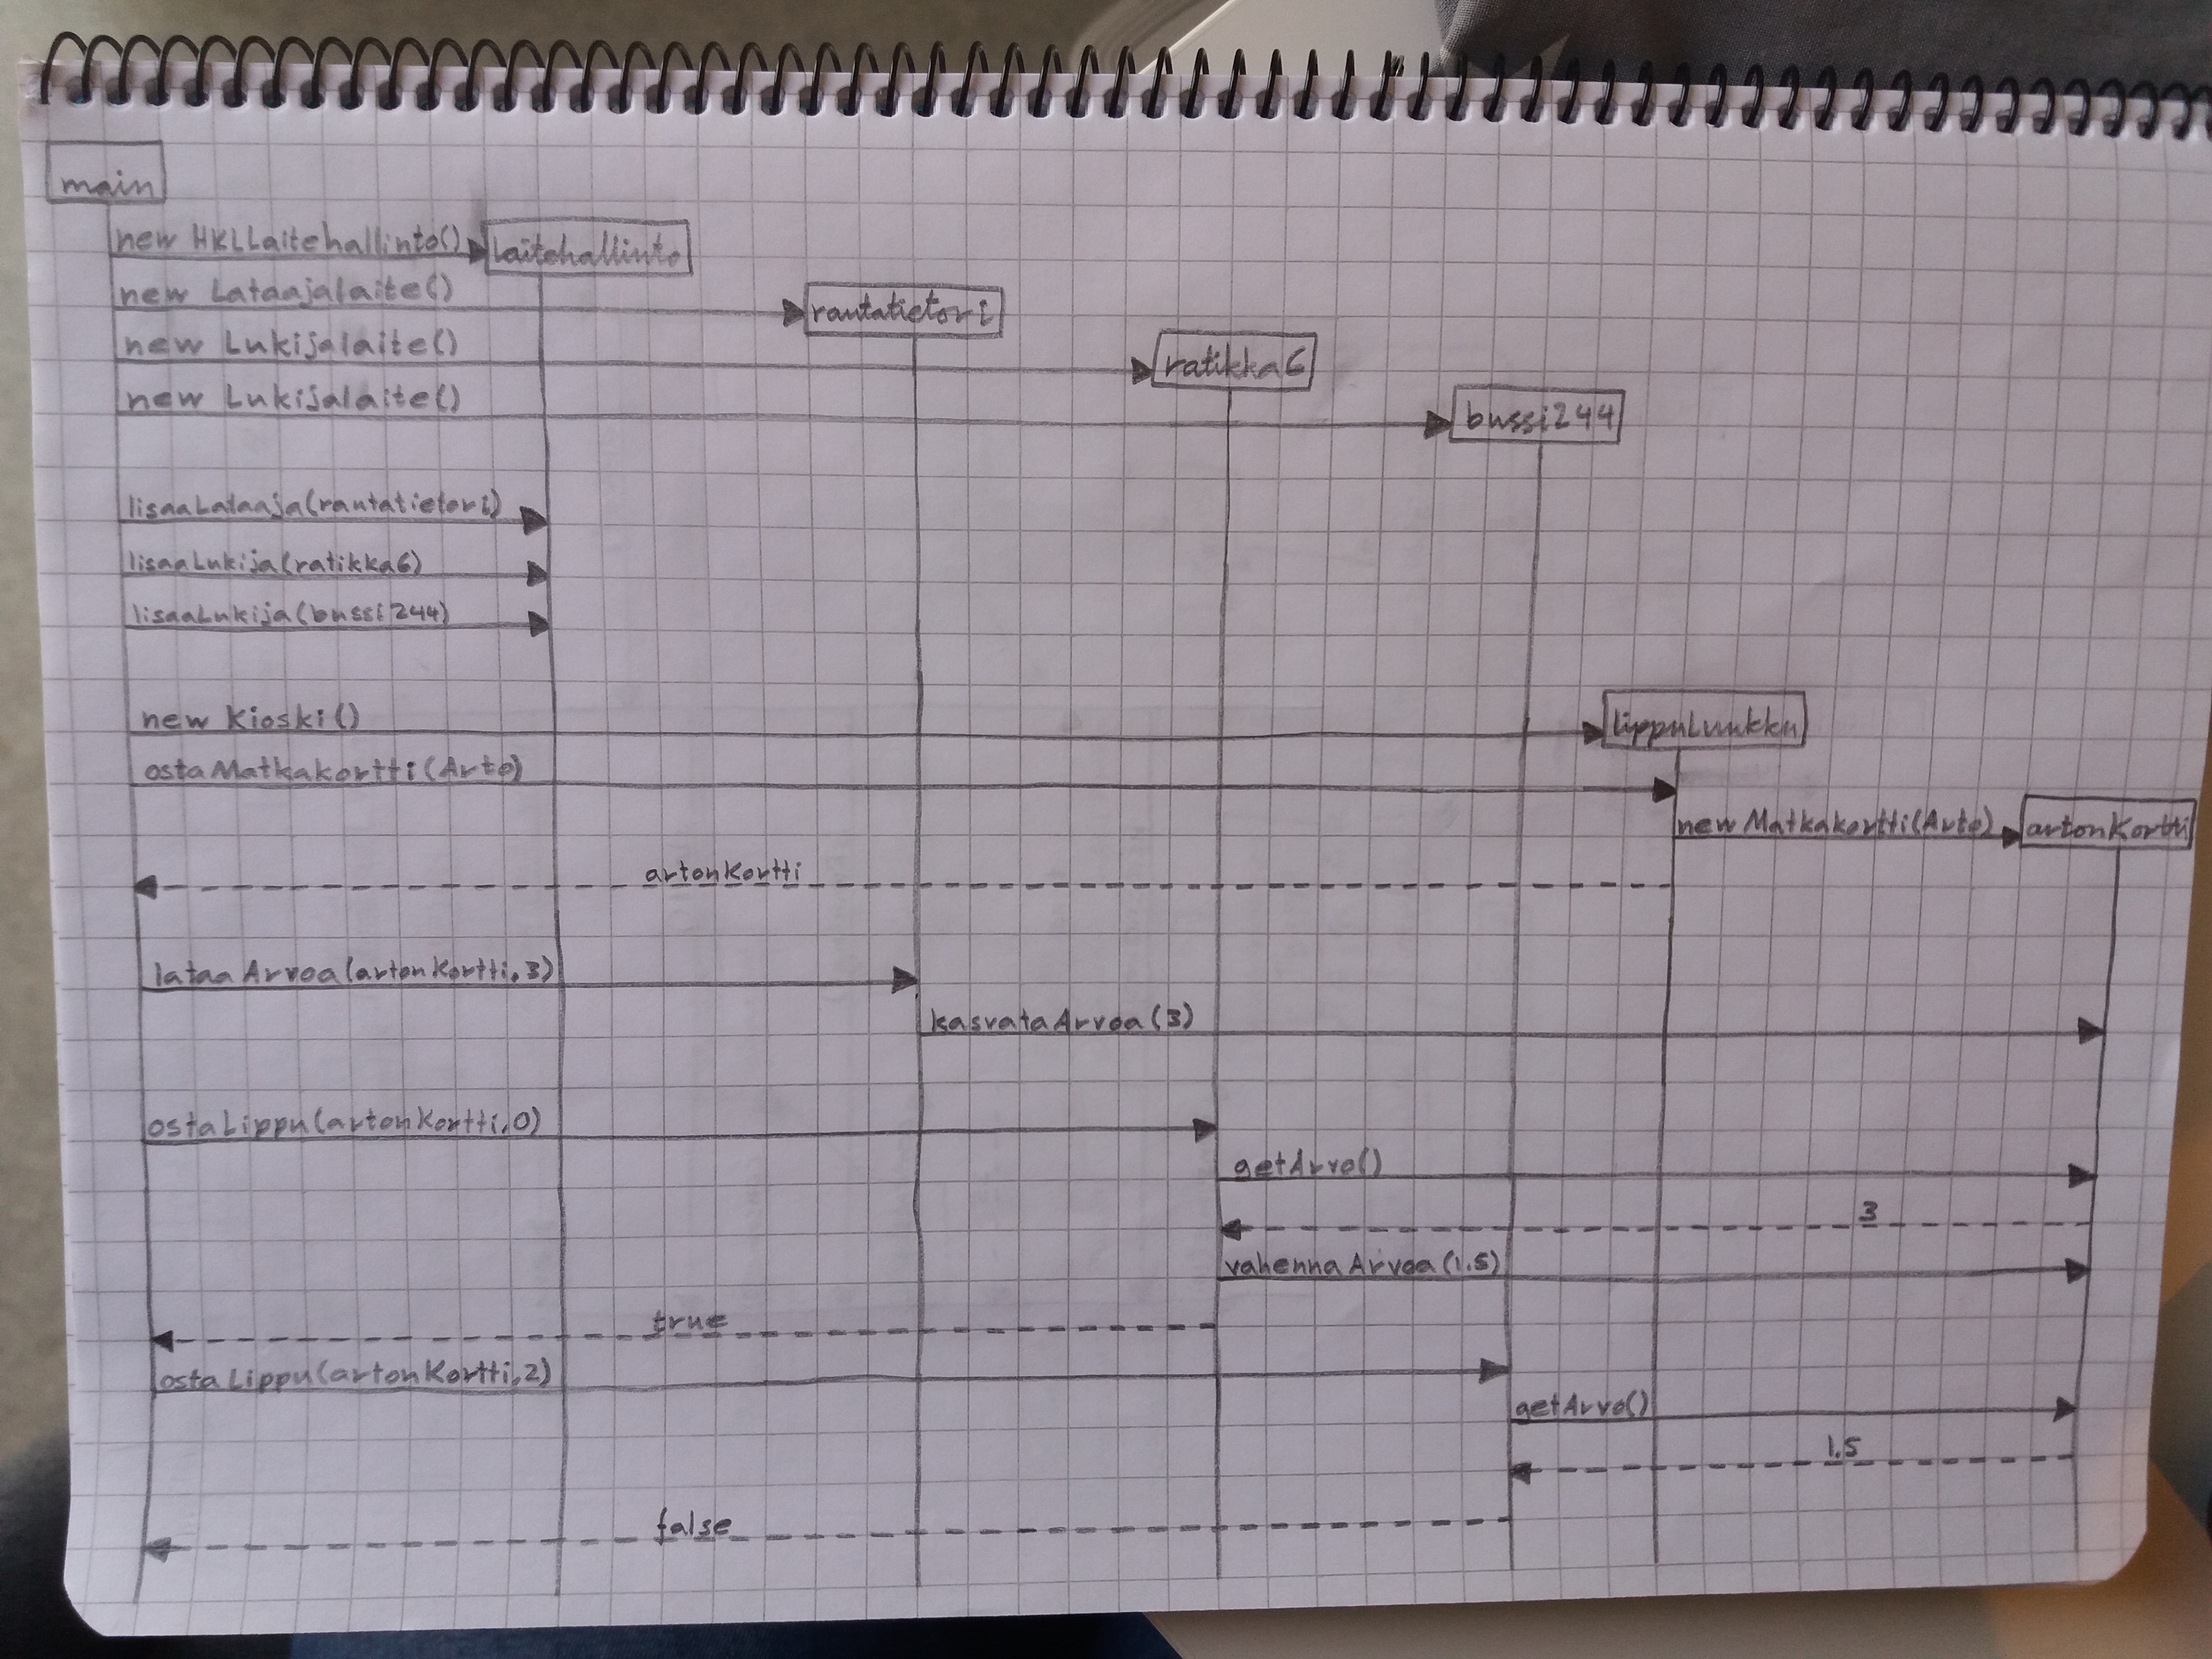 main
new HKLLaitehallinto()
laitehallinto
new Lataajalaite()
rautatietori
new Lukijalaite()
ratikka6
new Lukijalaite()
bussi244
lisaaLataaja(rautatietori)
lisaaLukija(ratikka6)
lisaaLukija(bussi244)
new Kioski()
lippuLuukku
ostaMatkakortti(Arto)
new Matkakortti(Arto)
artonKortti
artonKortti
lataaArvoa(artonKortti,3)
kasvataArvoa(3)
ostaLippu(artonKortti,0)
getArvo()
3
vahennaArvoa(1.5)
true
ostaLippu(artonKortti,2)
getArvo()
1.5
false